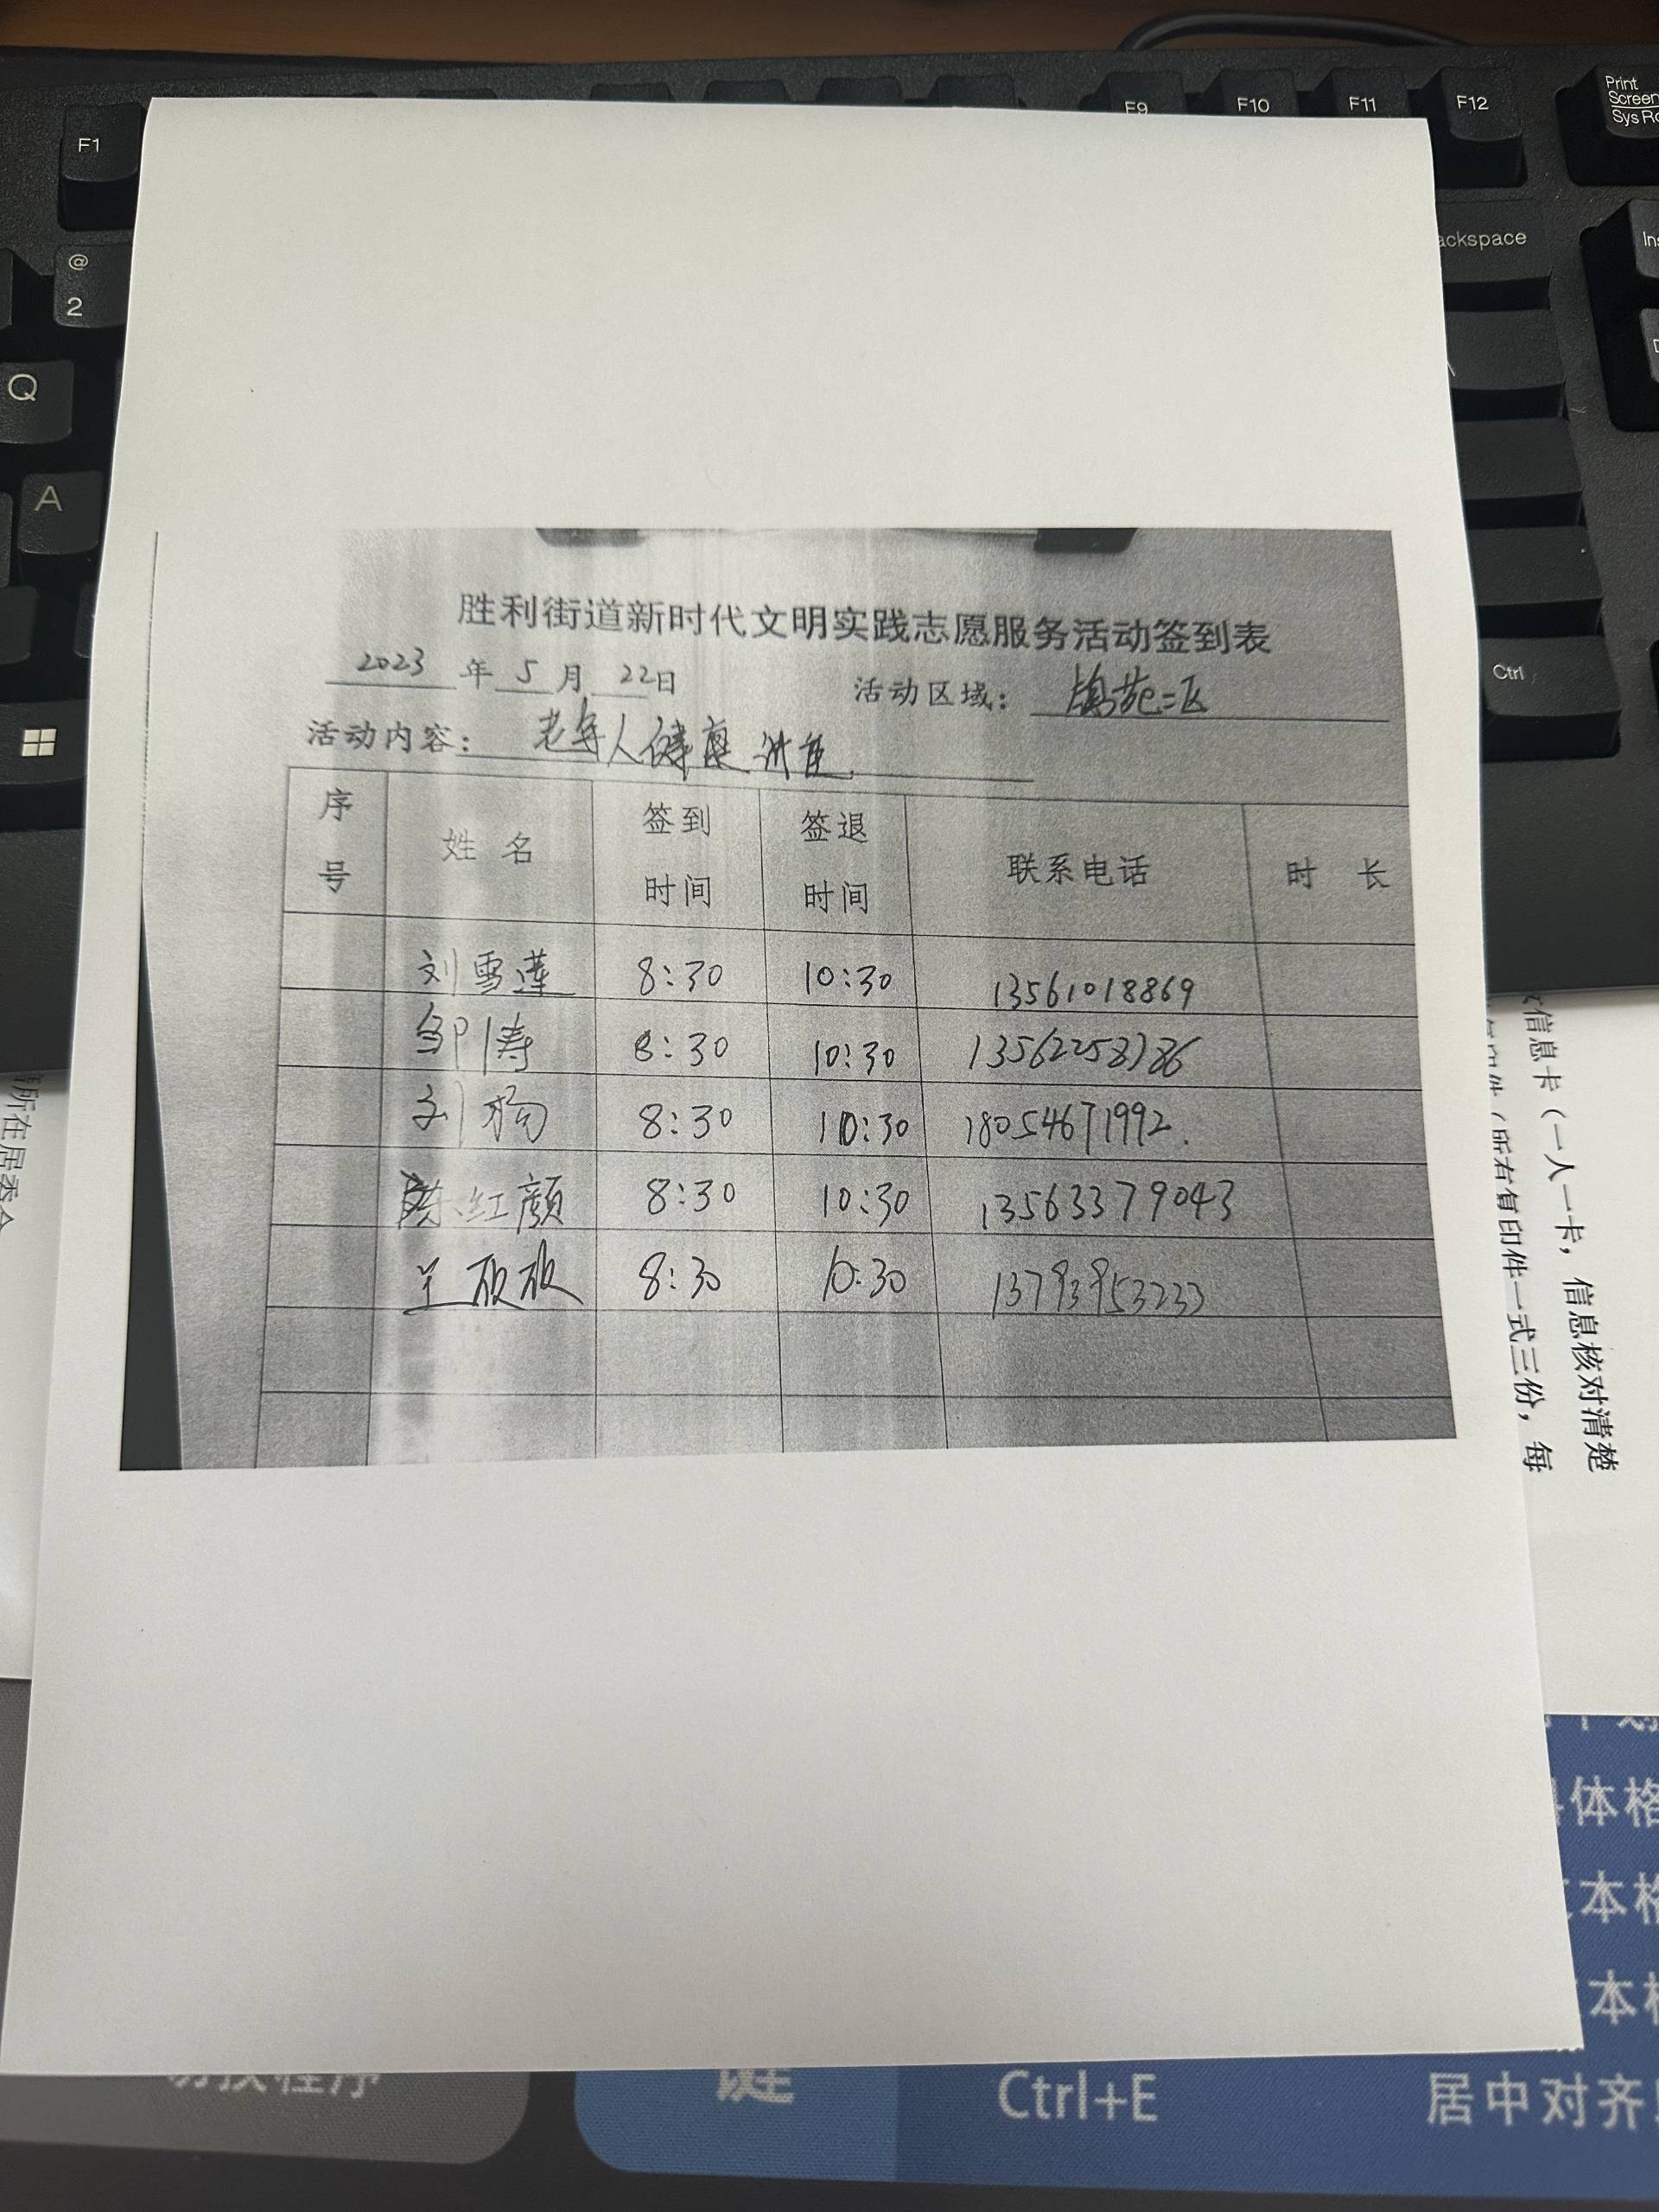 F1
F9
F10
F11
F12
Print
Screen
@
2
ackspace
Q
A
Ctrl
胜利街道新时代文明实践志愿服务活动签到表
2023 年 5 月 22日 活动区域: 二区
活动内容: 老年人健康讲座
序号 姓名 签到时间 签退时间 联系电话 时长
刘雪莲 8:30 10:30 13561018869
邹涛 8:30 10:30
刘杨 8:30 10:30 18054671992.
陈红颜 8:30 10:30 13563379043
8:30 10:30
信息卡(一人一卡,信息核对清楚
(所有复印件一式三份,每
所在居委会
体格
本格
本格
切换程序
键
Ctrl+E
居中对齐